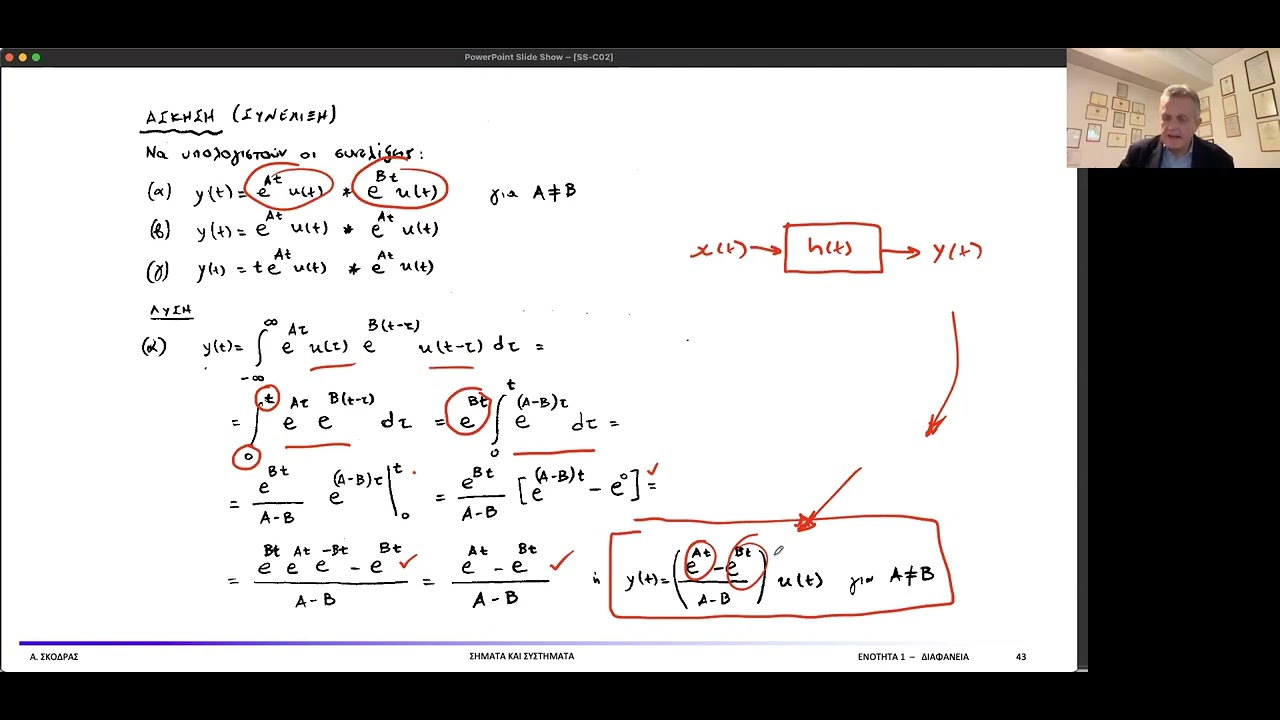 PowerPoint Slide Show – [SS-C02]
ΑΣΚΗΣΗ (ΣΥΝΕΛΙΞΗ)
Να υπολογιστούν οι συνελίξεις:
(α) y(t) = e^{At} u(t) * e^{Bt} u(t) για A≠B
(β) y(t) = e^{At} u(t) * e^{At} u(t)
(γ) y(t) = t e^{At} u(t) * e^{At} u(t)
x(t) → h(t) → y(t)
ΛΥΣΗ
(α) y(t) = ∫_{-∞}^{∞} e^{Aτ} u(τ) e^{B(t-τ)} u(t-τ) dτ =
= ∫_0^t e^{Aτ} e^{B(t-τ)} dτ = e^{Bt} ∫_0^t e^{(A-B)τ} dτ =
= e^{Bt}/(A-B) e^{(A-B)τ} |_0^t = e^{Bt}/(A-B) [e^{(A-B)t} - e^0] =
= (e^{Bt} e^{At} e^{-Bt} - e^{Bt})/(A-B) = (e^{At} - e^{Bt})/(A-B) ή y(t) = ((e^{At} - e^{Bt})/(A-B)) u(t) για A≠B
Α. ΣΚΟΔΡΑΣ
ΣΗΜΑΤΑ ΚΑΙ ΣΥΣΤΗΜΑΤΑ
ΕΝΟΤΗΤΑ 1 – ΔΙΑΦΑΝΕΙΑ 43